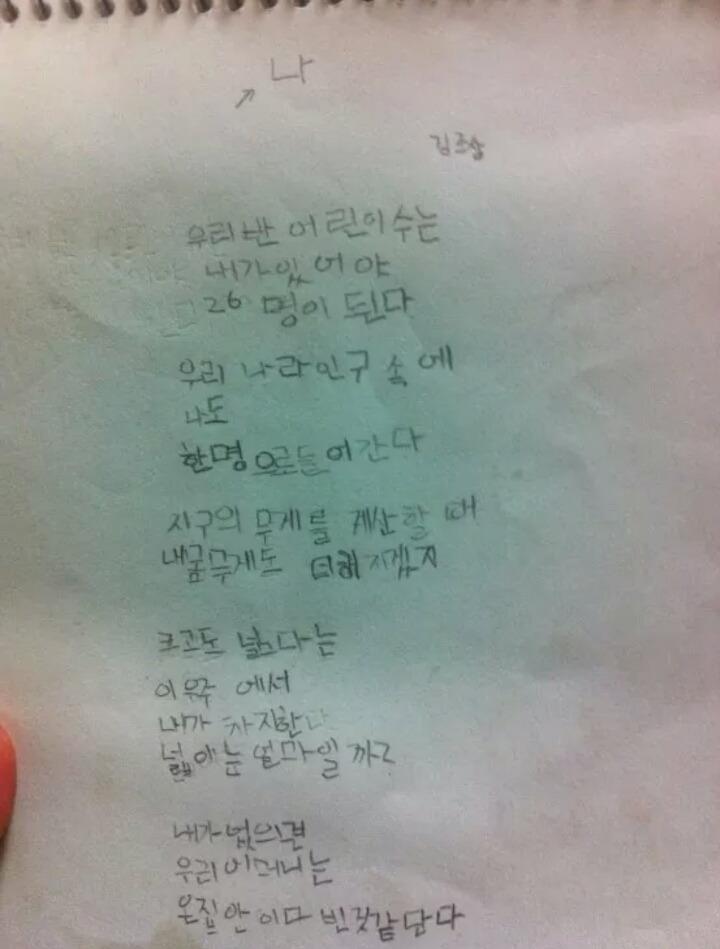 나
우리 반 어린이 수는
내가 있어야
26 명이 된다
우리 나라 인구 속에
나도
한명으로 들어간다
지구의 무게를 계산할 때
내몸무게도 더해지겠지
크고도 넓다는
이 우주 에서
내가 차지한
넓이는 얼마일 까?
내가 없으면
우리 어머니는
온집안 이다 빈것같단다